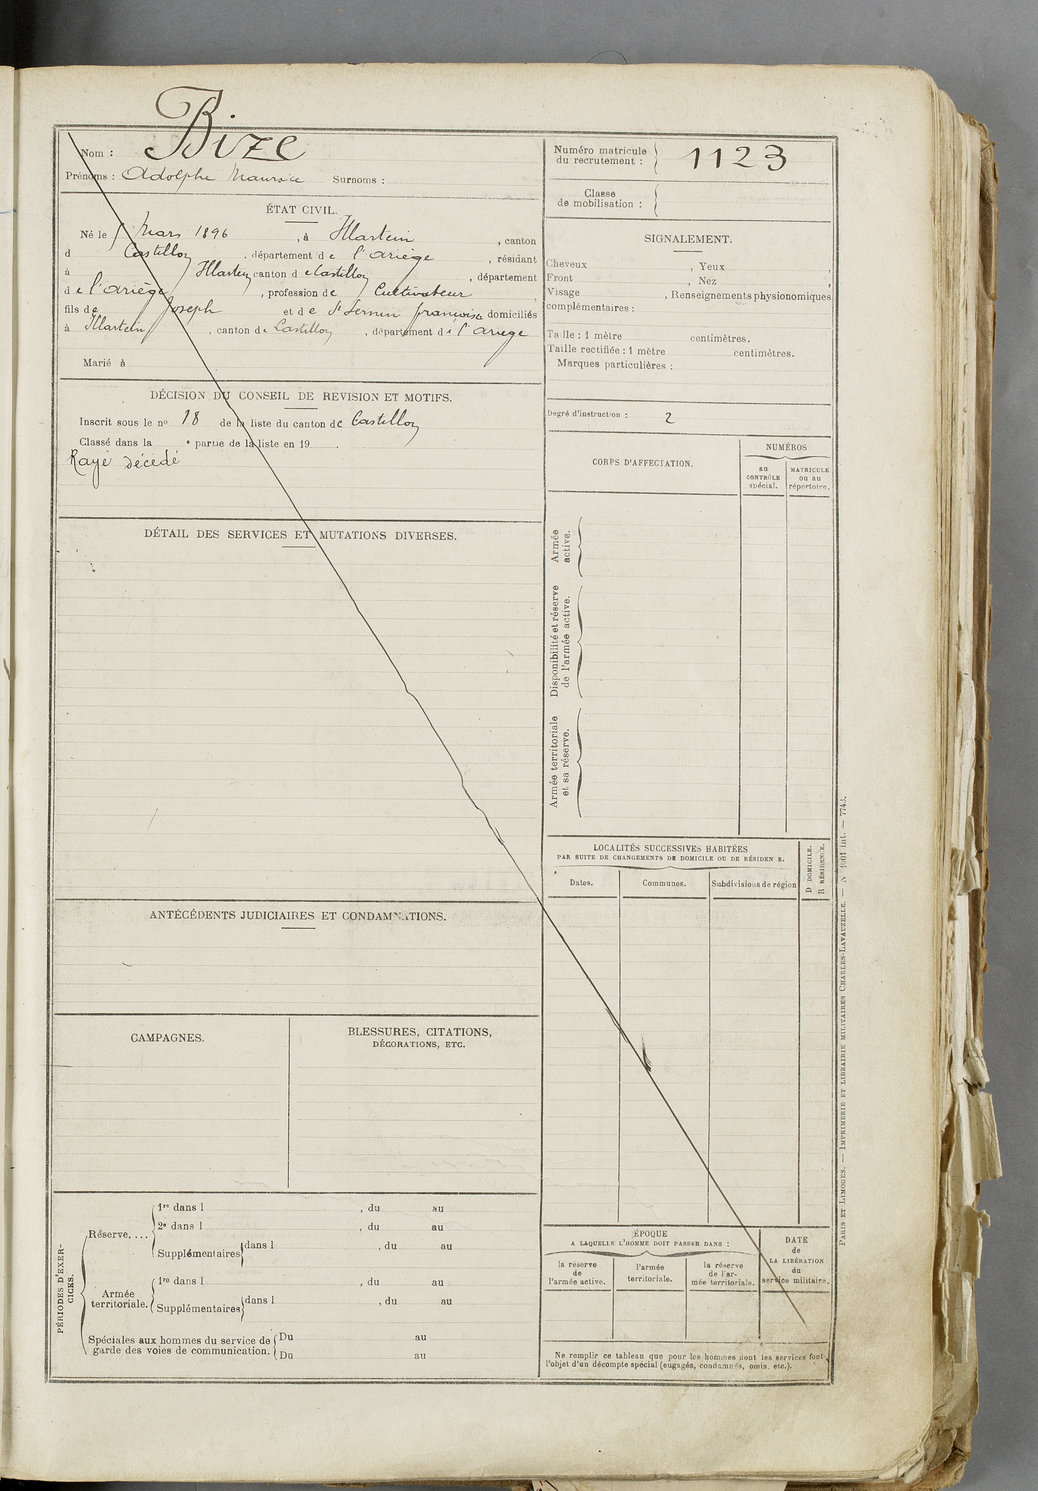 Bize
Nom :
Prénoms : Adolphe Maurice Surnoms :
Numéro matricule
du recrutement : 1123
Classe
de mobilisation :
ÉTAT CIVIL.
Né le Mars 1896, à Illartein, canton
d Castillon, département de l'ariège, résidant
à Illartein canton de Castillon, département
de l'ariège, profession de Cultivateur
fils de Joseph et de St Sernin françoise domiciliés
à Illartein, canton de Castillon, département de l'ariège
Marié à
SIGNALEMENT.
Cheveux , Yeux ,
Front , Nez ,
Visage , Renseignements physionomiques
complémentaires :
Taille : 1 mètre centimètres.
Taille rectifiée : 1 mètre centimètres.
Marques particulières :
Degré d'instruction : 2
DÉCISION DU CONSEIL DE REVISION ET MOTIFS.
Inscrit sous le no 18 de la liste du canton de Castillon
Classé dans la e partie de la liste en 19 .
Rayé décédé
CORPS D'AFFECTATION.
NUMÉROS
au
CONTRÔLE
spécial.
MATRICULE
ou au
répertoire.
Armée
active.
Disponibilité et réserve
de l'armée active.
Armée territoriale
et sa réserve.
DÉTAIL DES SERVICES ET MUTATIONS DIVERSES.
LOCALITÉS SUCCESSIVES HABITÉES
PAR SUITE DE CHANGEMENTS DE DOMICILE OU DE RÉSIDEN E.
Dates.
Communes.
Subdivisions de région
D DOMICILE.
R RÉSIDENCE.
ANTÉCÉDENTS JUDICIAIRES ET CONDAMNATIONS.
CAMPAGNES.
BLESSURES, CITATIONS,
DÉCORATIONS, ETC.
PÉRIODES D'EXER-
CICES.
Réserve....
1re dans l , du au
2e dans l , du au
Supplémentaires dans l , du au
Armée
territoriale.
1re dans l , du au
Supplémentaires dans l , du au
Spéciales aux hommes du service de
garde des voies de communication.
Du au
Du au
ÉPOQUE
A LAQUELLE L'HOMME DOIT PASSER DANS :
la réserve
de
l'armée active.
l'armée
territoriale.
la réserve
de l'ar-
mée territoriale.
DATE
de
LA LIBÉRATION
du
service militaire.
Ne remplir ce tableau que pour les hommes dont les services font
l'objet d'un décompte spécial (engagés, condamnés, omis, etc.).
PARIS ET LIMOGES. — IMPRIMERIE ET LIBRAIRIE MILITAIRES CHARLES-LAVAUZELLE. — N 1001 int. — 7743.